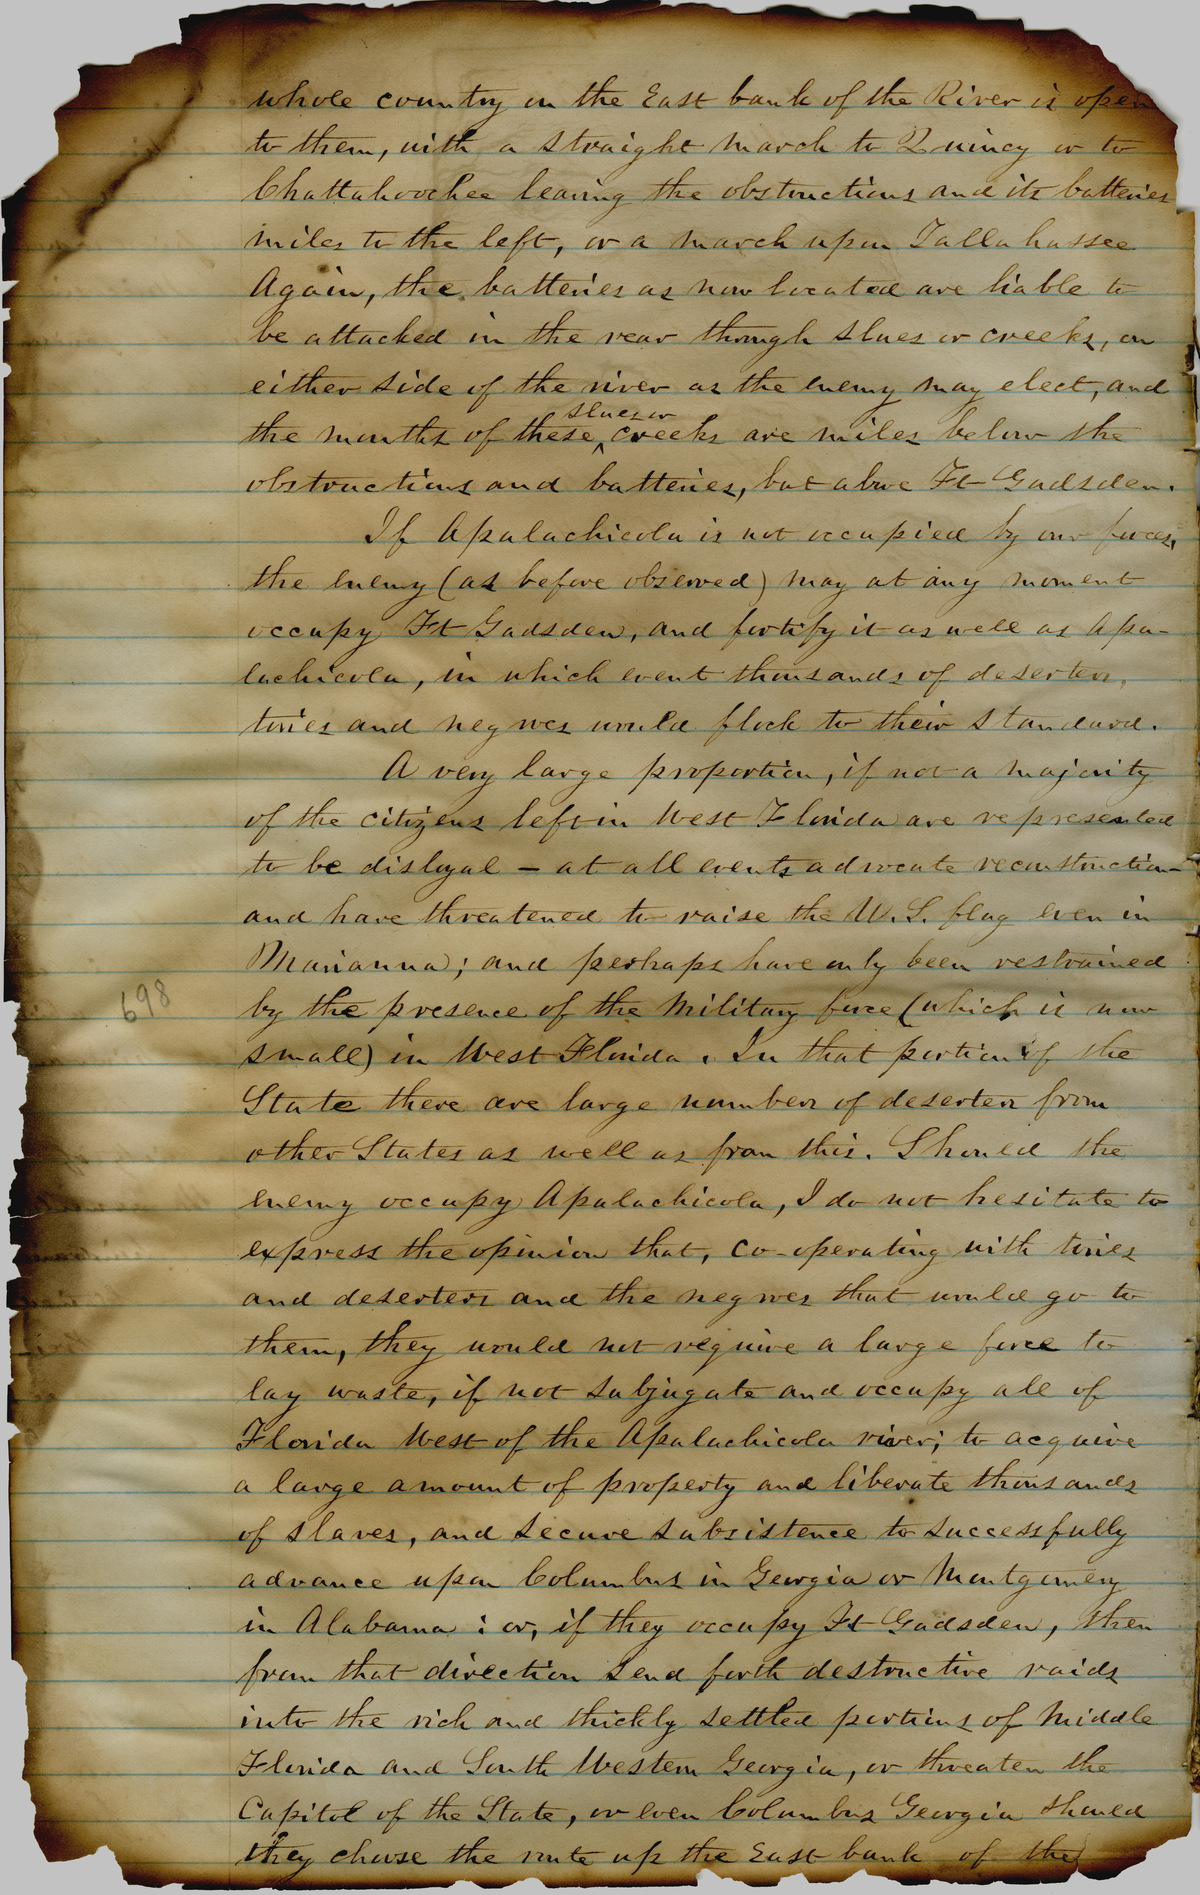 whole country on the East bank of the River is open
to them, with a straight march to Quincy or to
Chattahoochee leaving the obstructions and its batteries
miles to the left, or a march upon Tallahassee
Again, the batteries as now located are liable to
be attacked in the rear through slues or creeks, on
either side of the river as the enemy may elect, and
slues or
the mouths of these ‸ creeks are miles below the
obstructions and batteries, but above Ft Gadsden.
If Apalachicola is not occupied by our forces,
the enemy (as before observed) may at any moment
occupy Ft Gadsden, and fortify it as well as Apa-
lachicola, in which event thousands of deserters,
tories and negroes would flock to their standard.
A very large proportion, if not a majority
of the citizens left in West Florida are represented
to be disloyal - at all events advocate reconstruction -
and have threatened to raise the U.S. flag even in
Marianna; and perhaps have only been restrained
698
by the presence of the Military force (which is now
small) in West Florida. In that portion of the
State there are large numbers of deserters from
other States as well as from this. Should the
enemy occupy Apalachicola, I do not hesitate to
express the opinion that, co-operating with tories
and deserters and the negroes that would go to
them, they would not require a large force to
lay waste, if not subjugate and occupy all of
Florida West of the Apalachicola river; to acquire
a large amount of property and liberate thousands
of slaves, and secure subsistence to successfully
advance upon Columbus in Georgia or Montgomery
in Alabama: or, if they occupy Ft Gadsden, then
from that direction send forth destructive raids
into the rich and thickly settled portions of Middle
Florida and South Western Georgia, or threaten the
Capitol of the State, or even Columbus Georgia should
they choose the route up the East bank of the